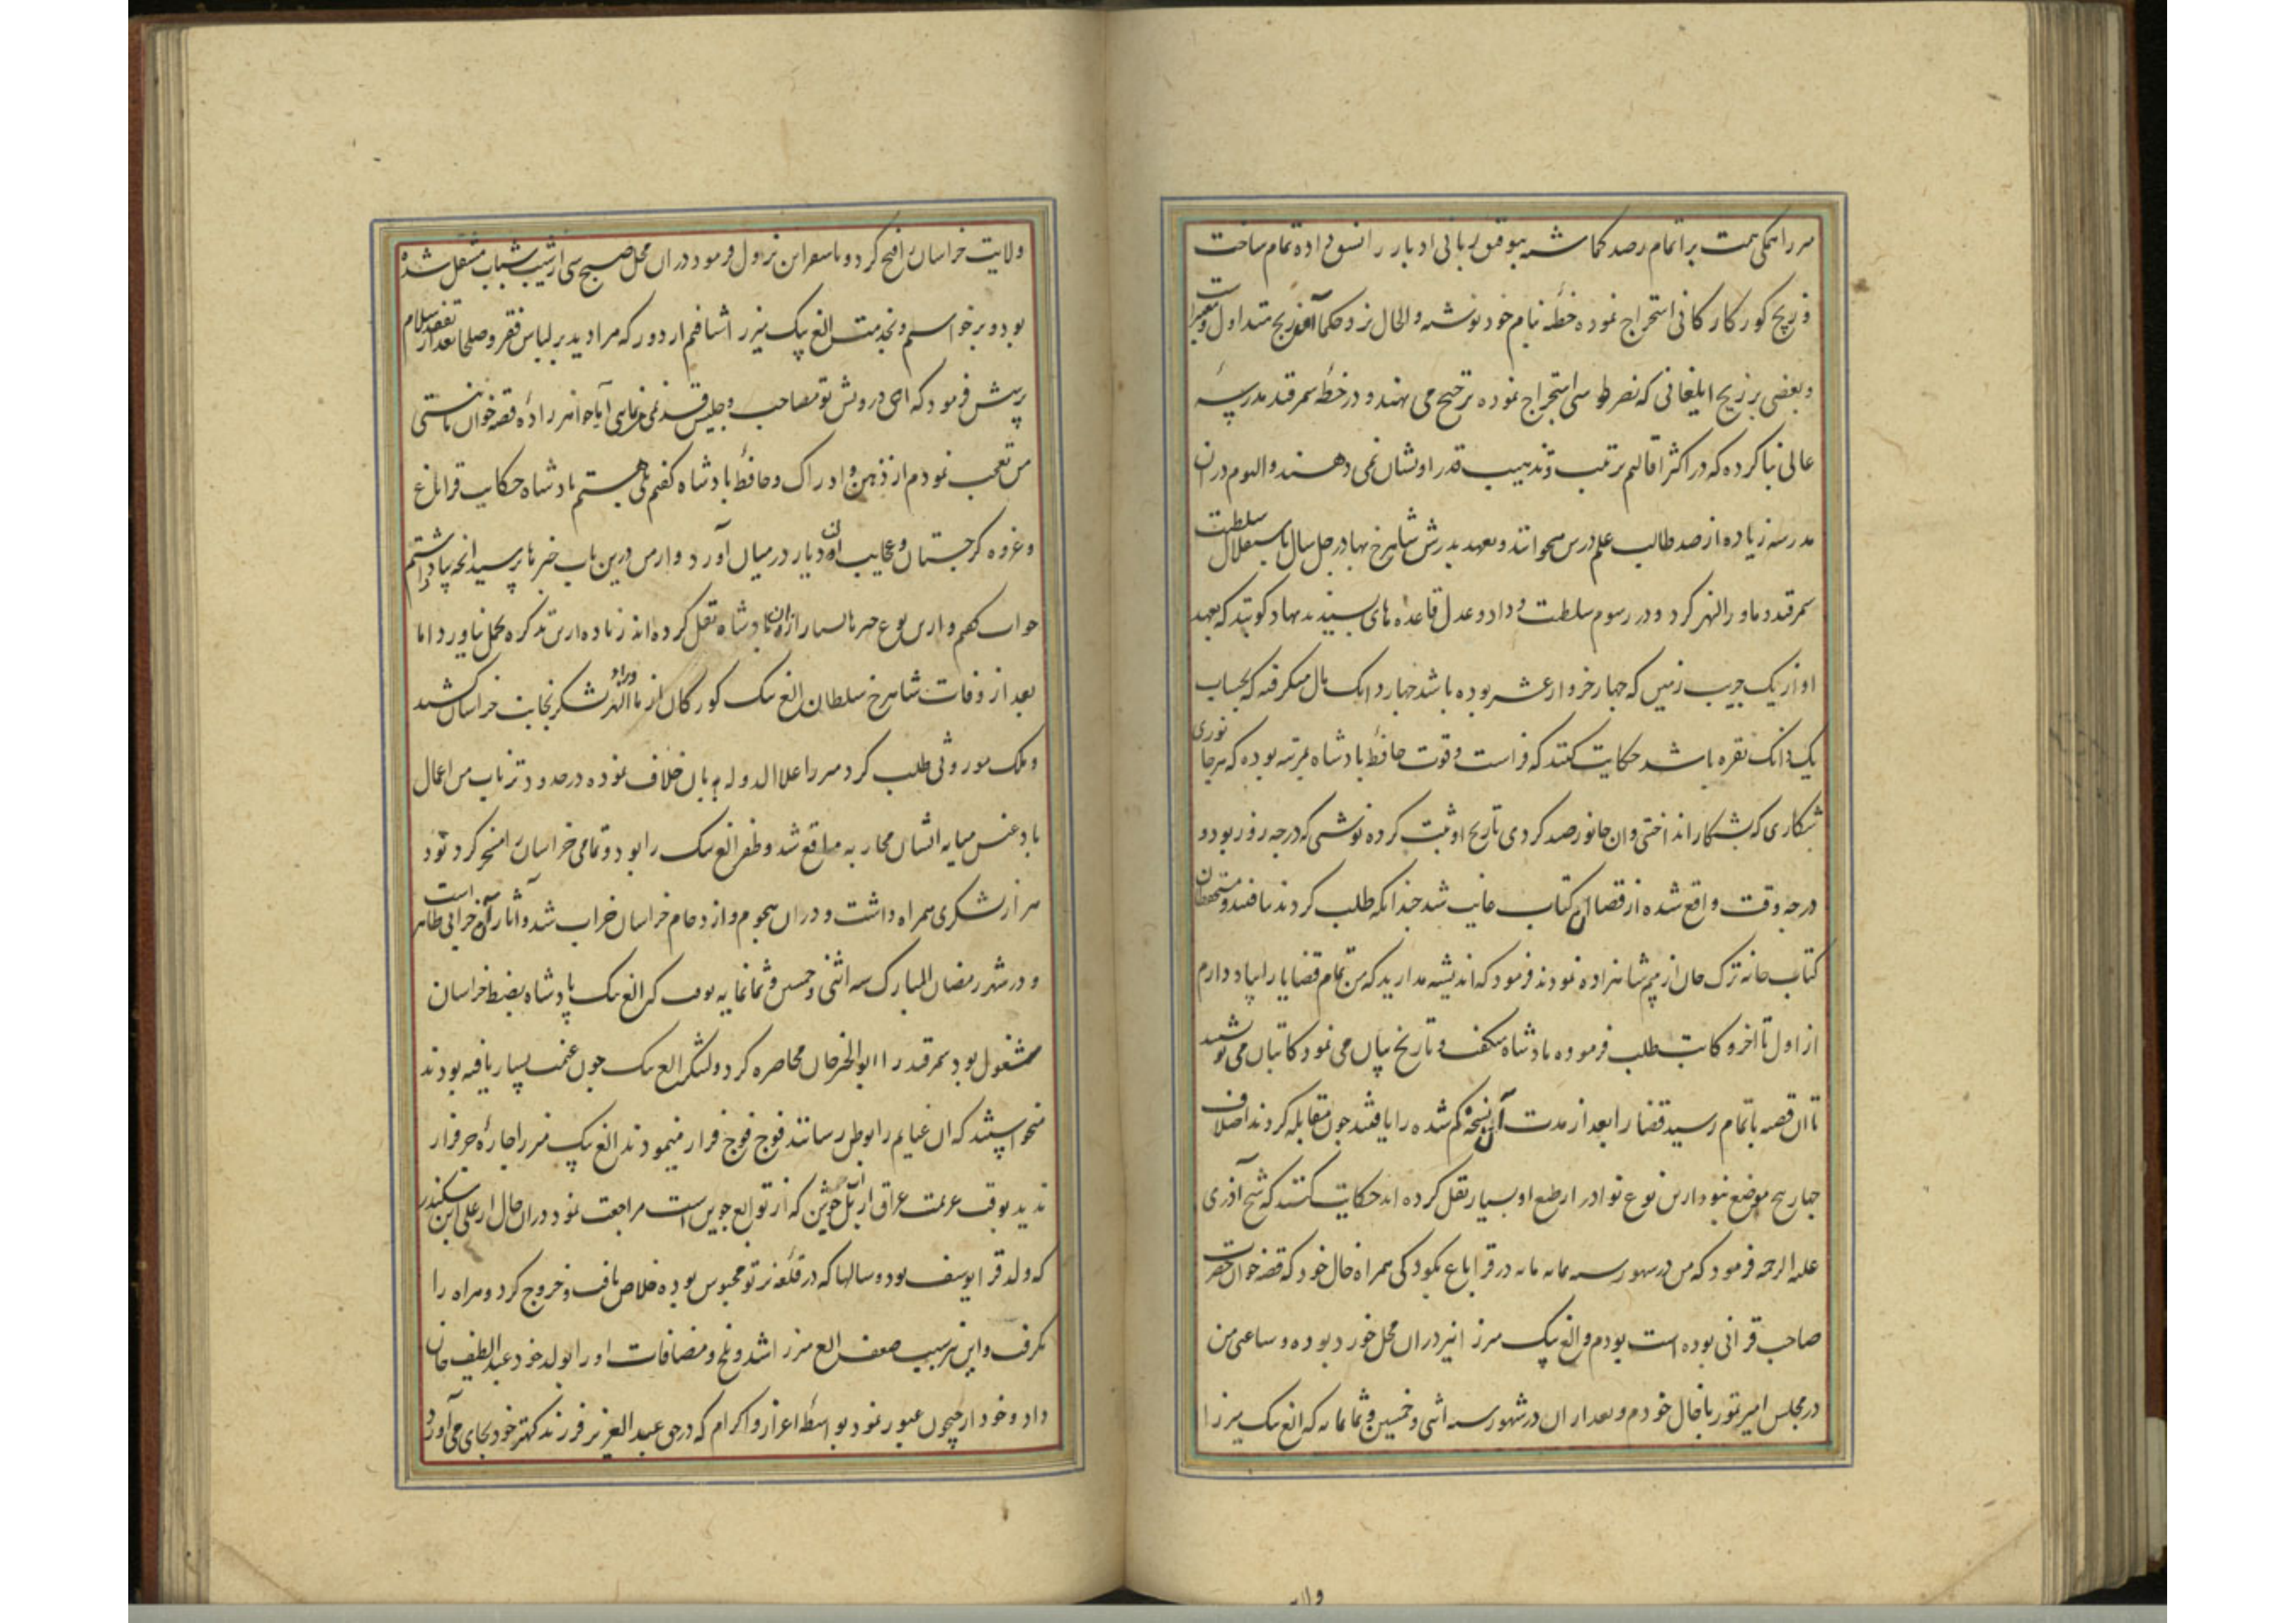 میرزا همگی همت بر اتمام رصد کماشته بتوفیق ربانی ادبار را نسوی داده تمام ساخت
و زیج کورکانی استخراج نموده خطبه بنام خود نوشته و الحال نزد حکما آن زیج متداول و معتبر است
و بعضی بر زیج ایلخانی که نصیر طوسی استخراج نموده ترجیح می نهند و در خطه سمرقند مدرسه
عالی بنا کرده که در اکثر اقالیم بترتیب و تذهیب قدر او نشان نمی دهند و الیوم در ان
مدرسه زیاده از صد طالب علم درس میخوانند و بعهد پدرش شاهرخ بهادر چهل سال باستقلال سلطنت
سمرقند و ماورالنهر کرد و در رسوم سلطنت و داد و عدل قاعده های پسندیده نهاد کویند که بعهد
او از یک جریب زمین که چهار خروار عشر بوده باشد چهار دانک مال میکرفته که بحساب
یک دانک نقره باشد حکایت کنند که فراست و قوت حافظه پادشاه بمرتبه بوده که هر جانوری
شکاری که بشکار انداختی و ان جانور صید کردی تاریخ او ثبت کرده نوشتی که در چه روز بود و
در چه وقت واقع شده از قضا ان کتاب غایب شد چندانکه طلب کردند نیافتند و مستحفظان
کتاب خانه ترک جان از بیم شاهزاده نمودند فرمود که اندیشه مدارید که من تمام قضایا را بیاد دارم
از اول تا اخر و کاتب طلب فرموده پادشاه میکفت و تاریخ بیان می نمود کاتبان می نوشتند
تا ان قصه باتمام رسید قضا را بعد از مدت آن نسخه کم شده را یافتند چون مقابله کردند اختلاف
چهار پنج موضع نبود ازین نوع نوادر از طبع او بسیار نقل کرده اند حکایت کنند که شیخ آذری
علیه الرحمه فرمود که من در شهور سنه ثمانمایه در قراباغ بکودکی همراه خال خود که قصه خوان حضرت
صاحب قرانی بوده است بودم و الغ بیک میرزا نیز دران محل خورد بوده و ساعتی من
در مجلس امیر تیمور با خال خودم و بعد از ان در شهور سنه اثنی و خمسین و ثمانمایه که الغ بیک میرزا
ولا
ولایت خراسان را فتح کرد و باسفراین نزول فرمود دران محل صبح بی ارشیب شباب منتقل شده
بود و برخواستم و بخدمت الغ بیک میرزا شتافتم از دور که مرا دید بر لباس فقر و صلحا بعد از تفقد سلام
پرسش فرمود که ای درویش تو مصاحب و جلیس قدیمی می نمایی آیا خواهرزاده قصه خوان ما نیستی
من تعجب نمودم از ذهن و ادراک و حافظه پادشاه کفتم بلی هستم پادشاه حکایت قراباغ
و غزوه کرجستان و عجایب ان دیار در میان آورد و از من درین باب خبرها پرسید انچه بیاد داشتم
جواب کفتم و ازین نوع خبرها بسیار ازان پادشاه نقل کرده اند زیاده ازین تذکره تحمل نیاورد اما
بعد از وفات شاهرخ سلطان الغ بیک کورکان از ماوراالنهر لشکر بجانب خراسان کشید
و ملک موروثی طلب کرد میرزا علاالدوله بان خلاف نموده در حدود ترناب من اعمال
بادغیس میانه ایشان محاربه واقع شد و ظفر الغ بیک را بود و تمامی خراسان را مسخر کرد نود
هزار لشکری همراه داشت و دران هجوم و ازدحام خراسان خراب شد و آثار آن خرابی ظاهر است
و در شهر رمضان المبارک سنه اثنی و خمسین و ثمانمایه بود که الغ بیک پادشاه بضبط خراسان
مشغول بود سمرقند را ابوالخیر خان محاصره کرد و لشکر الغ بیک چون غنیمت بسیار یافته بودند
میخواستند که ان غنایم را بوطن رسانند فوج فوج فرار مینمودند الغ بیک میرزا چاره جز فرار
ندید بوقت عزیمت عراق از پل ابریشم که از توابع جوین است مراجعت نمود دران حال یارعلی ابن سکندر
که ولد قرا یوسف بود و سالها که در قلعه نرتو محبوس بوده خلاص یافت و خروج کرد و هراه را
بکرفت و این نیز سبب ضعف الغ میرزا شد و بلخ و مضافات او را بولد خود عبدالطیف خان
داد و خود از جیحون عبور نمود بواسطه اعزاز و اکرام که در حق عبدالعزیز فرزند کهتر خود بجای می آورد